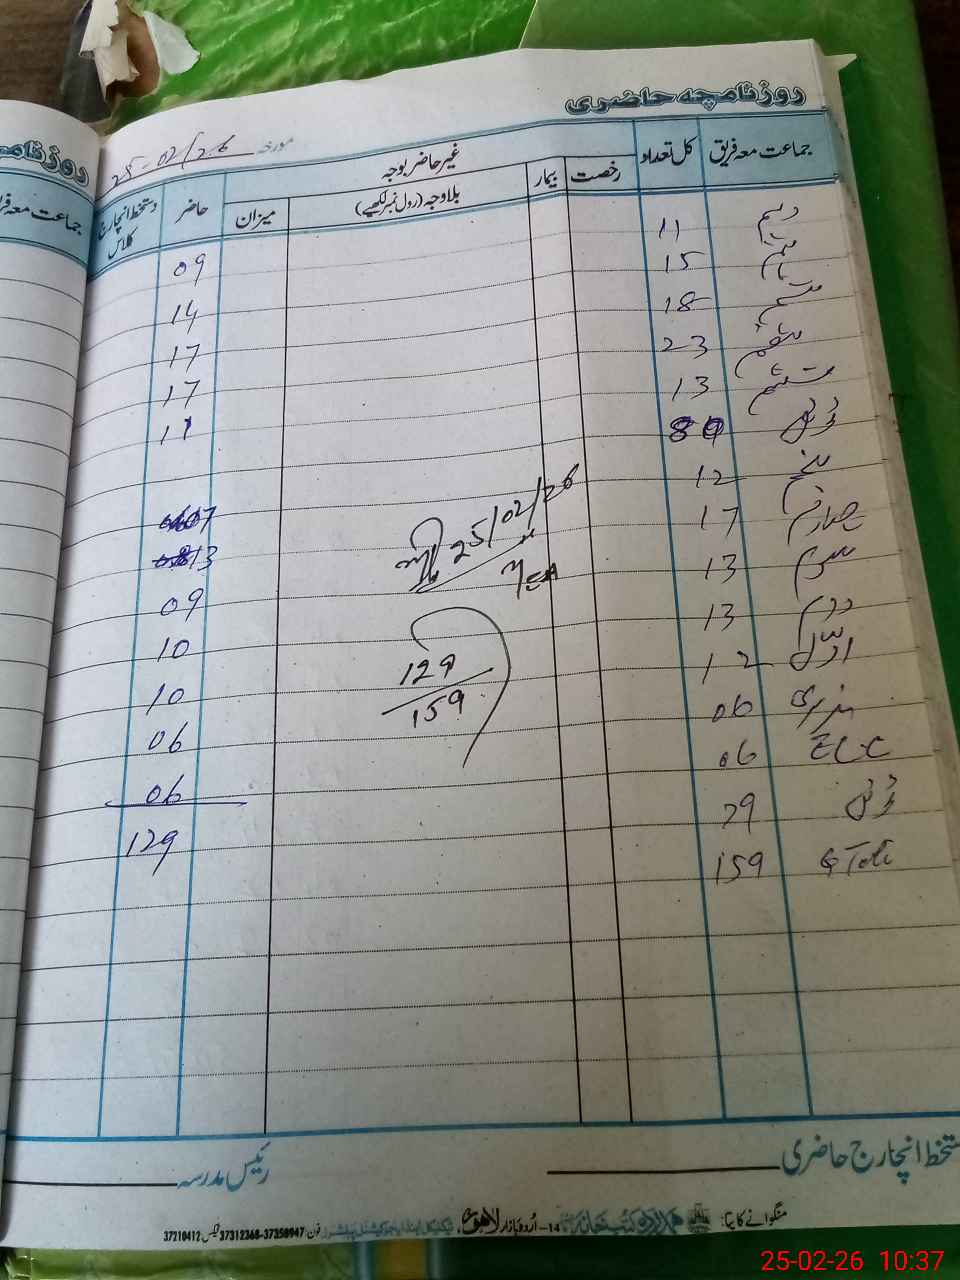 روزنامچہ حاضری
مورخہ 25-02/26
جماعت معہ فریق کل تعداد غیر حاضر بوجہ حاضر دستخط انچارج کلاس
رخصت بیمار بلاوجہ (رول نمبر لکھیے) میزان
دہم 11 09
نہم 15 14
ہشتم 18 17
ہفتم 23 17
ششم 13 11
ٹوٹل 80
پنجم 12 07
چہارم 17 13
سوم 13 09
دوم 13 10
اول 12 10
نرسری 06 06
ECC 06 06
ٹوٹل 79 129
G Total 159
25/02/26
MEA
129
159
دستخط انچارج حاضری
رئیس مدرسہ
منگوانے کا پتا: ہمدرد کتب خانہ 14- اُردو بازار لاہور، فون: 37358947-37312368 فیکس 37210412
روزنامچہ
جماعت معہ فریق
25-02-26 10:37